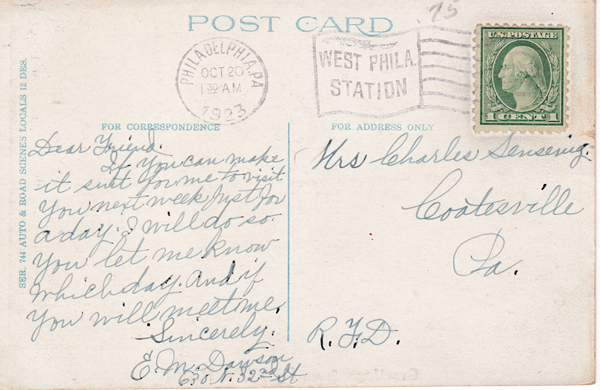 POST CARD
75
PHILADELPHIA, PA.
OCT 20
1 30 AM
1923
WEST PHILA.
STATION
U.S. POSTAGE
1 CENT 1
FOR CORRESPONDENCE
FOR ADDRESS ONLY
SER. 744 AUTO & ROAD SCENES LOCALS 12 DES.
Dear Friend.
If you can make
it suit for me to visit
you next week just for
a day. I will do so.
You let me know
which day. And if
you will meet me.
Sincerely.
E. M. Dawson
630 N. 32nd St
Mrs Charles Sensenig.
Coatesville
Pa.
R.F.D.